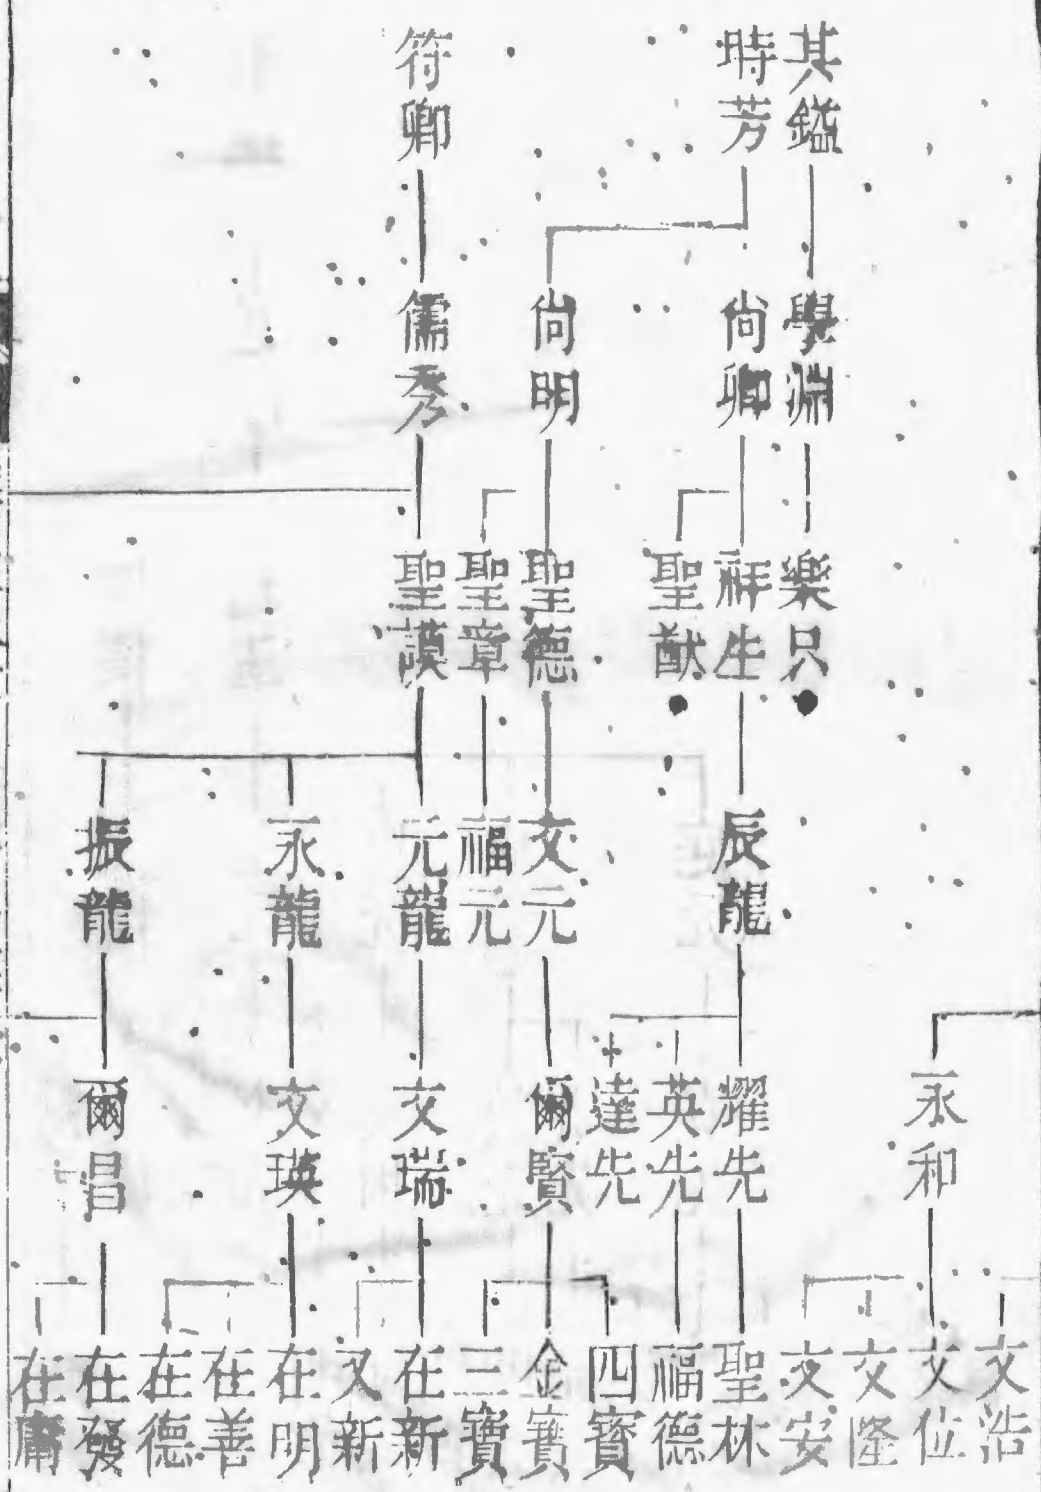 其鎰
時芳
符卿
學淵
尙卿
尙明
儒秀
樂只
祥生
聖猷
聖德
聖章
聖謨
辰龍
文元
福元
元龍
永龍
振龍
永和
耀先
英先
達先
爾賢
文瑞
文瑛
爾昌
文浩
文位
文隆
文安
聖林
福德
四寶
金寶
三寶
在新
又新
在明
在善
在德
在發
在庸